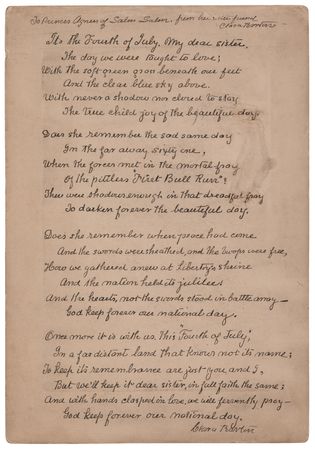 To Princess Agnes of Salm Salm, from her old friend
Clara Barton
It's the Fourth of July, My dear sister,
The day we were taught to love;
With the soft green grass beneath our feet
And the clear blue sky above.
With never a shadow nor cloud to stay
The true child joy of the beautiful day.
Does she remember the sad same day
In the far away, sixty one,
When the forces met in the mortal fray
Of the pitiless "First Bull Run"?
There were shadows enough in that dreadful fray
To darken forever the beautiful day.
Does she remember when peace had come
And the swords were sheathed, and the troops were free,
How we gathered anew at liberty's shrine
And the nation held its jubilee
And the hearts, not the swords stood in battle array—
God keep forever our national day.
Once more it is with us. This "Fourth of July,"
In a far distant land that knows not its name;
To keep its remembrance are just you and I,
But we'll keep it dear sister, in full faith the same;
And with hands clasped in love, we will fervently pray—
God keep forever our national day.
Clara Barton